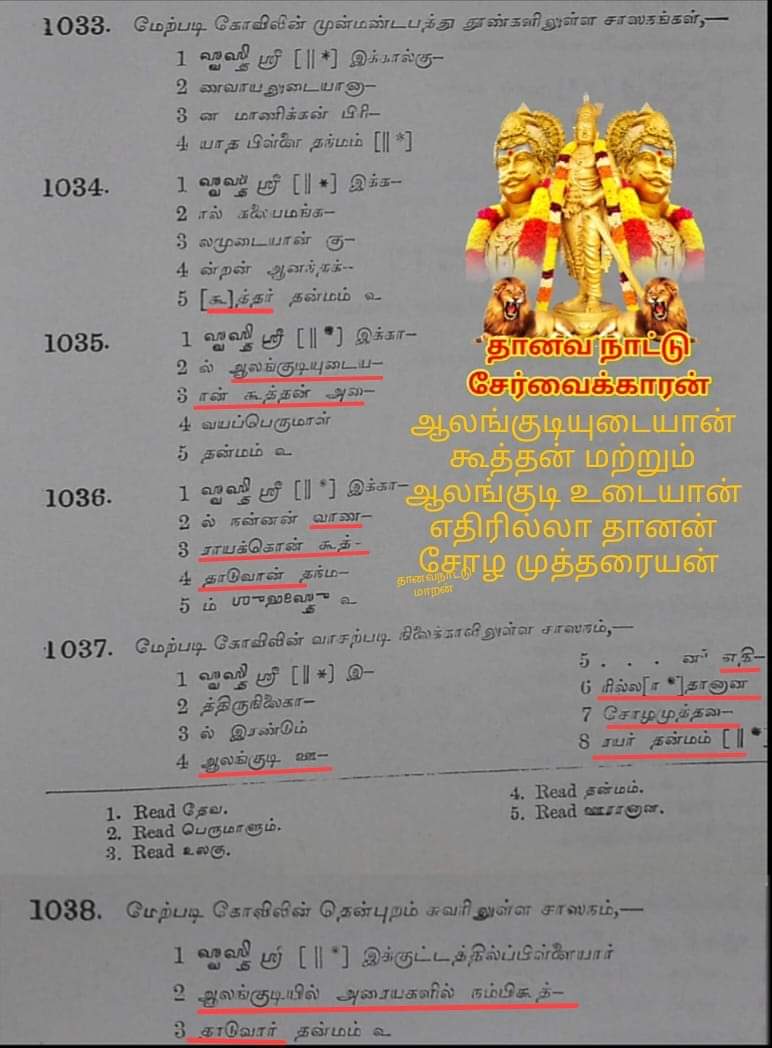 1033. மேற்படி கோவிலின் முன்மண்டபத்து தூண்களிலுள்ள சாஸநங்கள்,—
1 ஸ்வஸ்தி ஸ்ரீ [||*] இக்கால்கு—
2 ணவாயலுடையானு—
3 ன மாணிக்கன் பிரி—
4 யாத பிள்ளை தந்மம் [||*]
1034. 1 ஸ்வஸ்தி ஸ்ரீ [||*] இக்க—
2 ால் கலைபமங்க—
3 லமுடையான் கு—
4 ன்றன் ஆனந்தக்—
5 [கூ]த்தர் தன்மம் உ
1035. 1 ஸ்வஸ்தி ஸ்ரீ [||*] இக்கா—
2 ல் ஆலங்குடியுடைய—
3 ான் கூத்தன் அல—
4 வயப்பெருமாள்
5 தன்மம் உ
1036. 1 ஸ்வஸ்தி ஸ்ரீ [||*] இக்கா—
2 ல் நன்னன் வாண—
3 ராயக்கொன் கூத்—
4 தாடுவான் தந்ம—
5 ம் உ
1037. மேற்படி கோவிலின் வாசற்படி நிலைக்காலிலுள்ள சாஸநம்,—
1 ஸ்வஸ்தி ஸ்ரீ [||*] இ—
2 த்திருநிலைகா—
3 ல் இரண்டும்
4 ஆலங்குடி ஊ—
5 . . . ன⁵ எதி—
6 ரில்ல[ா*]தானான
7 சோழமுத்தை—
8 ரயர் தன்மம் [||*]
1. Read தேவ.
2. Read பெருமாளும்.
3. Read உலகு.
4. Read தன்மம்.
5. Read ஊரானான.
1038. மேற்படி கோவிலின் தென்புறம் சுவரிலுள்ள சாஸநம்,—
1 ஸ்வஸ்தி ஸ்ரீ [||*] இக்குட்டத்தில்ப்பிள்ளையார்
2 ஆலங்குடியில் அரையகளில் நம்பிகூத்—
3 தாடுவார் தன்மம் உ
தானவ நாட்டு
சேர்வைக்காரன்
ஆலங்குடியுடையான்
கூத்தன் மற்றும்
ஆலங்குடி உடையான்
எதிரில்லா தானன்
சோழ முத்தரையன்
தானவநாட்டு
மாறன்